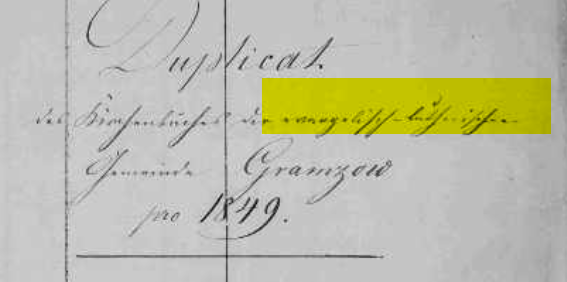 Duplicat.
des Kirchenbuches der evangelisch-luthrischen
Gemeinde Gramzow
pro 1849.